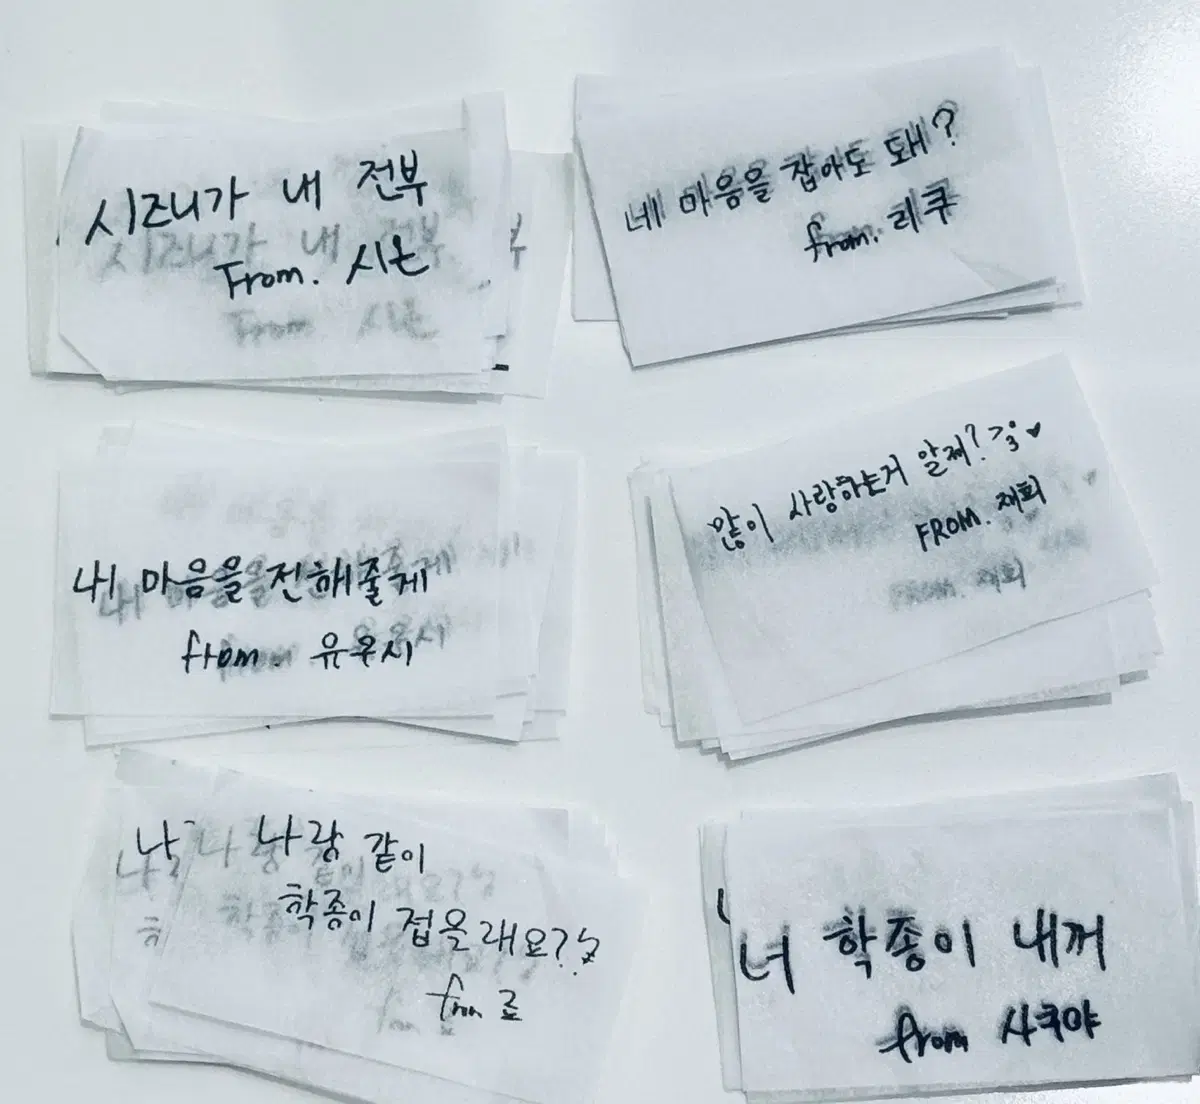 시즈니가 내 전부
From. 시온
네 마음을 잡아도 돼?
from. 리쿠
내 마음을 전해줄게
from. 유우시
많이 사랑하는거 알제?
FROM. 재희
나랑 같이
학종이 접을래요?
from 료
너 학종이 내꺼
from 사쿠야